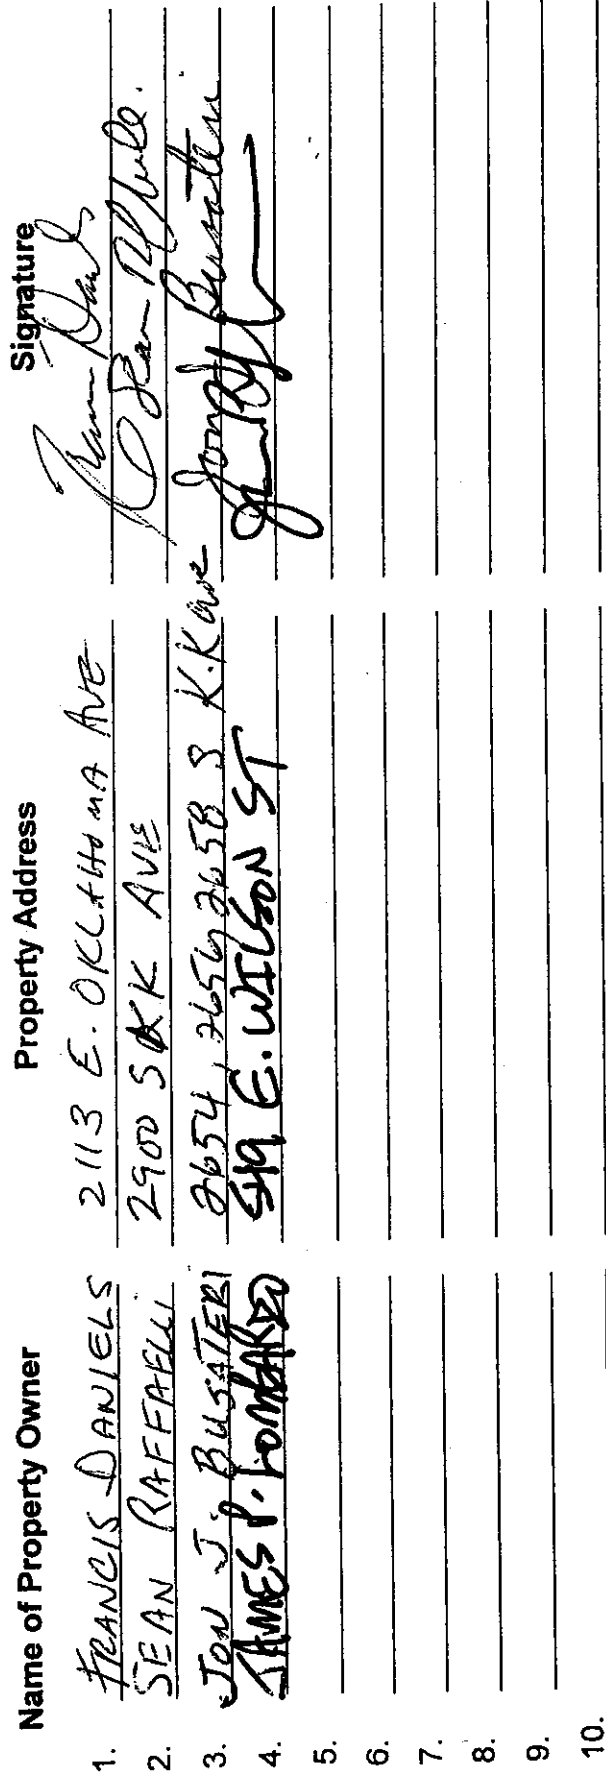 Name of Property Owner Property Address Signature
1. FRANCIS DANIELS 2113 E. OKLAHOMA AVE
2. SEAN RAFFAELLI 2900 S KK AVE Sean
3. JON J. BUSATERI 2654, 2656, 2658 S K.K ave Jon Busateri
4. JAMES P. LOMBARDO 519 E. WILSON ST
5.
6.
7.
8.
9.
10.